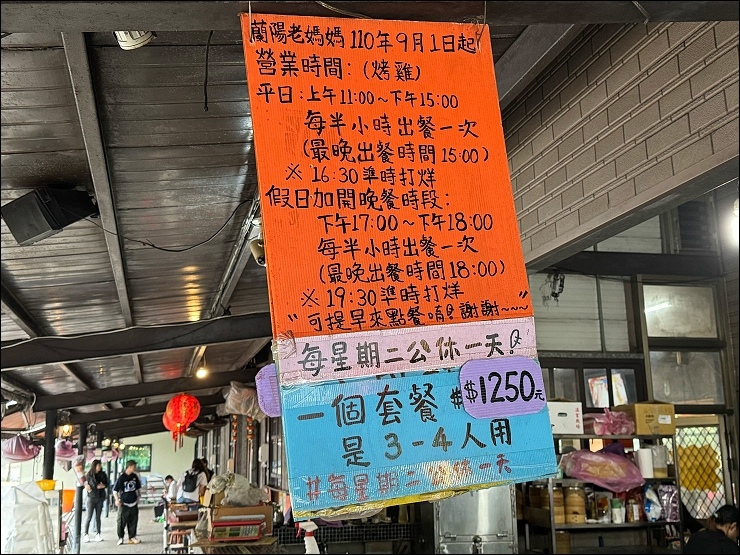 蘭陽老媽媽 110年9月1日起
營業時間:(烤雞)
平日:上午11:00~下午15:00
每半小時出餐一次
(最晚出餐時間15:00)
※16:30準時打烊
假日加開晚餐時段:
下午17:00~下午18:00
每半小時出餐一次
(最晚出餐時間18:00)
※19:30準時打烊
"可提早來點餐唷!謝謝~~~"
每星期二公休一天!
一個套餐 $$1250元
是3-4人用
#每星期二公休一天